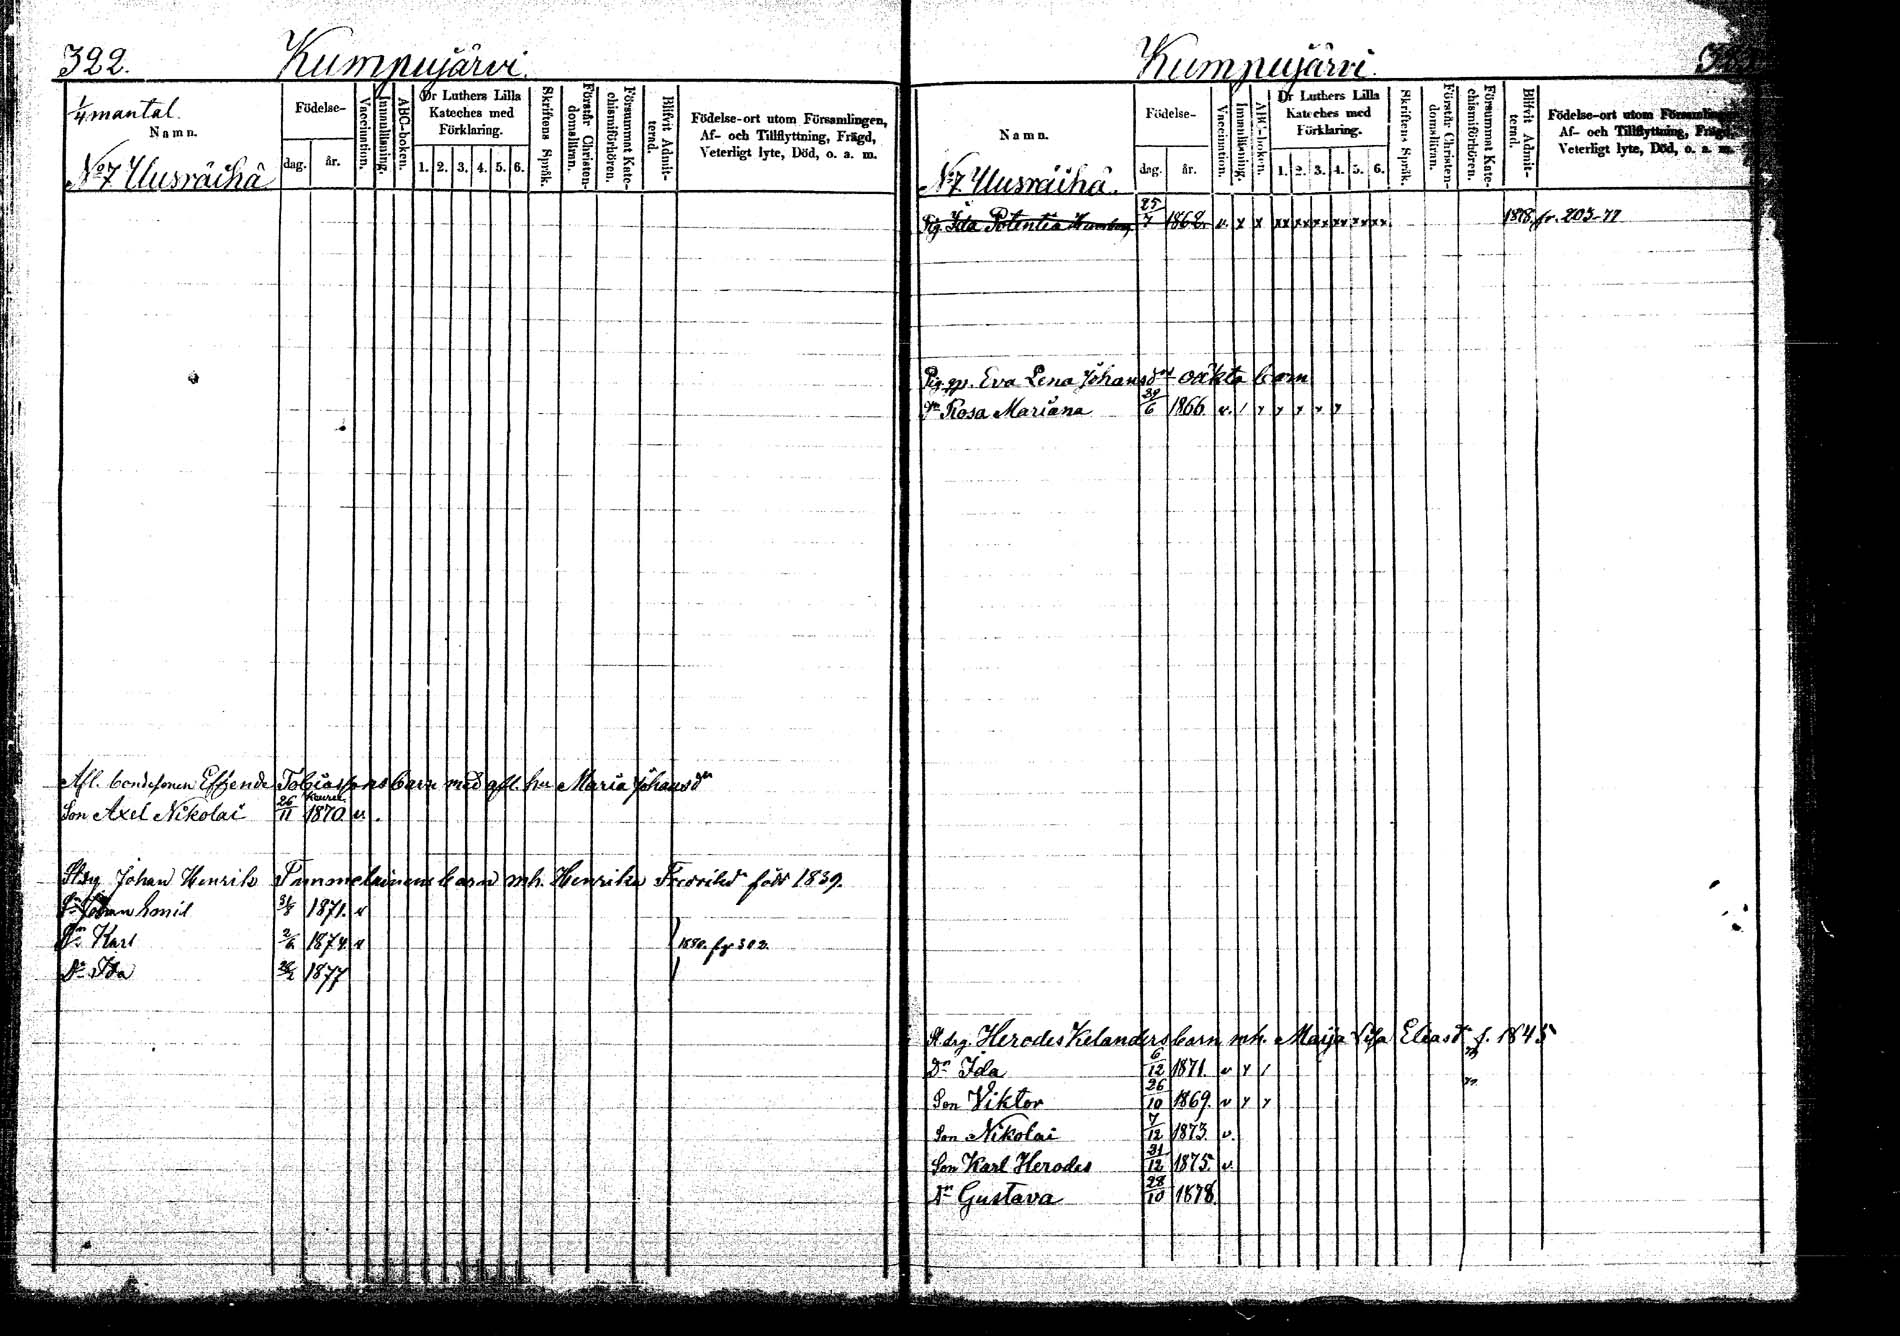 322.
Kumpujärvi.
1/4 mantal.
Namn.
No 7 Uusräihä
Födelse-
dag.
år.
Vaccination.
Innanläsning.
ABC-boken.
Dr Luthers Lilla
Kateches med
Förklaring.
1. 2. 3. 4. 5. 6.
Skriftens Språk.
Förstår Christen-
domsläran.
Försummt Kate-
chismiförhören.
Blifvit Admit-
terad.
Födelse-ort utom Församlingen,
Af- och Tillflyttning, Frägd,
Veterligt lyte, Död, o. a. m.
Afl. bondesonen Effende Tobiassons barn med afl. hu Maria Johansdr
Son Axel Nikolai 26/11 1870. v.
Johan Henrik Tammelainens barn mh. Henrika Fredriksdr född 1839.
Sn Johan Emil 31/8 1871. v
Sn Karl 2/6 1874 v 1880. fg 302.
Dr Ida 1877
Kumpujärvi.
Namn.
No 7. Uusräihä.
Födelse-
dag.
år.
Vaccination.
Innanläsning.
ABC-boken.
Dr Luthers Lilla
Kateches med
Förklaring.
1. 2. 3. 4. 5. 6.
Skriftens Språk.
Förstår Christen-
domsläran.
Försummt Kate-
chismiförhören.
Blifvit Admit-
terad.
Födelse-ort utom Församlingen
Af- och Tillflyttning, Frägd,
Veterligt lyte, Död, o. a. m.
Pig. Ida Potentia 25/7 1862. v. x x xx xx xx xx xx xx 1878. fr. 203-77
Pig. Eva Lena Johansdr oäkta barn
Dr Rosa Mariana 29/6 1866 v.
St. drg. Herodes Kelanders barn mh. Maija Lisa Eliasdr f. 1845
Dr Ida 6/12 1871. v
Son Viktor 26/10 1869. v
Son Nikolai 7/12 1873. v.
Son Karl Herodes 31/12 1875. v.
Dr Gustava 28/10 1878.